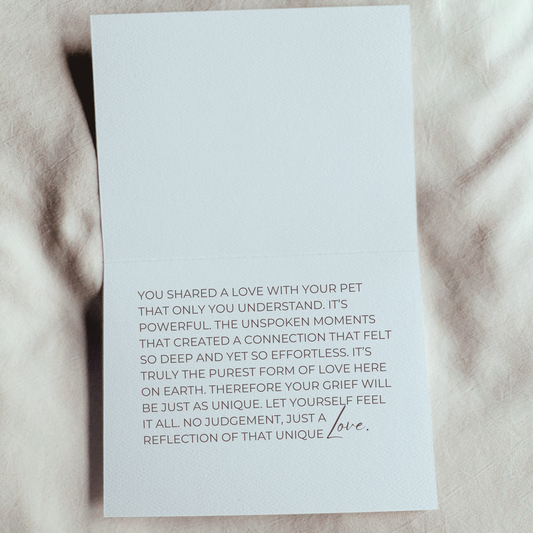 YOU SHARED A LOVE WITH YOUR PET
THAT ONLY YOU UNDERSTAND. IT'S
POWERFUL. THE UNSPOKEN MOMENTS
THAT CREATED A CONNECTION THAT FELT
SO DEEP AND YET SO EFFORTLESS. IT'S
TRULY THE PUREST FORM OF LOVE HERE
ON EARTH. THEREFORE YOUR GRIEF WILL
BE JUST AS UNIQUE. LET YOURSELF FEEL
IT ALL. NO JUDGEMENT, JUST A
REFLECTION OF THAT UNIQUE Love.